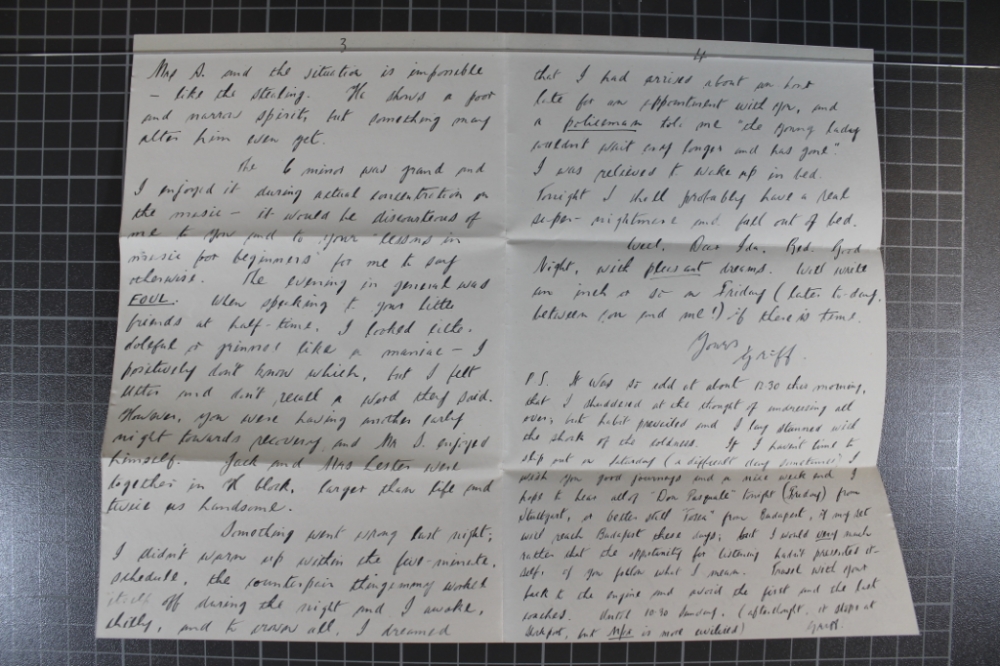 3
Mrs S. and the situation is impossible
– like the sterling. He shows a poor
and narrow spirit, but something may
alter him even yet.
The G minor was grand and
I enjoyed it during actual concentration on
the music – it would be discourteous of
me to you and to your "lessons in
music for beginners" for me to say
otherwise. The evening in general was
FOUL. When speaking to your little
friends at half-time, I looked
doleful or grinned like a maniac – I
positively don't know which, but I felt
bitter and don't recall a word they said.
However, you were having another early
night towards recovery and Mr S. enjoyed
himself. Jack and Mrs Lester were
together in block, larger than life and
twice as handsome.
Something went wrong last night;
I didn't warm up within the five-minute
schedule, the counterpair thingummy worked
itself off during the night and I awoke,
and to crown all, I dreamed
4
that I had arrived about an hour
late for an appointment with you, and
a policeman told me "the young lady
wouldn't wait any longer and has gone".
I was relieved to wake up in bed.
Tonight I shall probably have a real
super-nightmare and fall out of bed.
Well, Dear Ida. Bed. Good
Night, with pleasant dreams. Will write
an inch or so on Friday (later to-day,
between you and me!) if there is time.
Yours
Griff.
P.S. It was so odd at about 12.30 this morning,
that I shuddered at the thought of undressing all
over; but habit prevailed and I lay stunned with
the shock of the coldness. If I haven't time to
slip out on Saturday (a difficult day sometimes) I
wish you good journeys and a nice week end. I
hope to hear all of "Don Pasquale" tonight (Friday) from
Stuttgart, or better still "Tosca" from Budapest, if my set
will reach Budapest these days; but I would very much
rather that the opportunity for listening hadn't presented it-
self, if you follow what I mean. Travel with your
back to the engine and avoid the first and the last
coaches. Until 10.30 Sunday. (afterthought, it stops at
Stockport, but is more civilised) Griff.